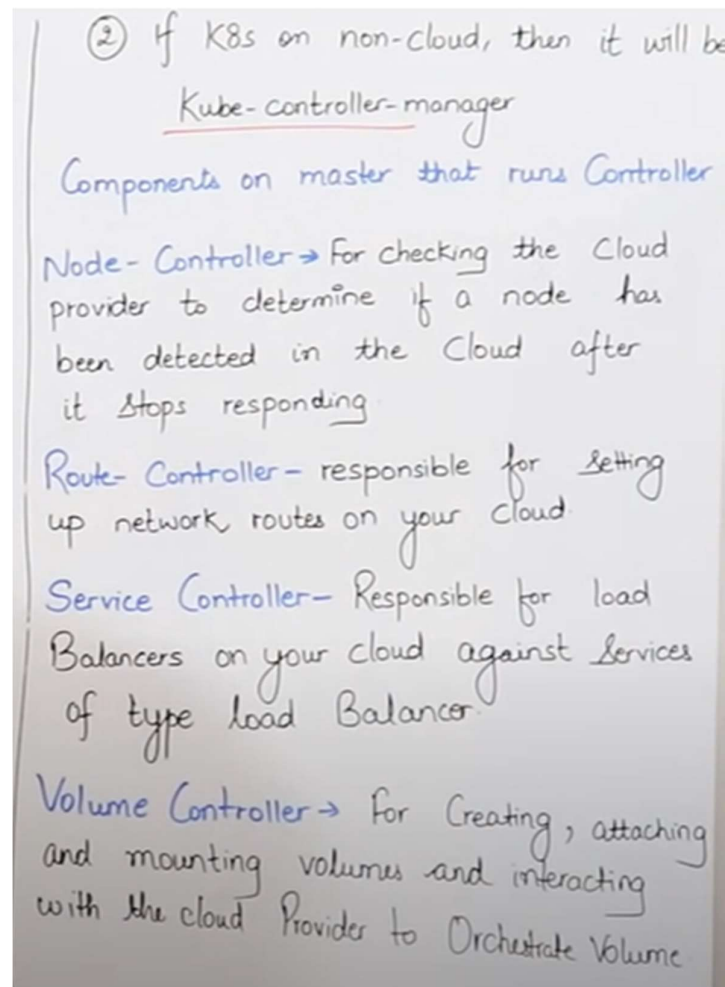 ② If K8s on non-cloud, then it will be
Kube-controller-manager
Components on master that runs Controller
Node-Controller → For checking the Cloud
provider to determine if a node has
been detected in the Cloud after
it stops responding
Route-Controller - responsible for setting
up network routes on your cloud.
Service Controller - Responsible for load
Balancers on your cloud against services
of type load Balancer.
Volume Controller → For Creating, attaching
and mounting volumes and interacting
with the cloud Provider to Orchestrate Volume